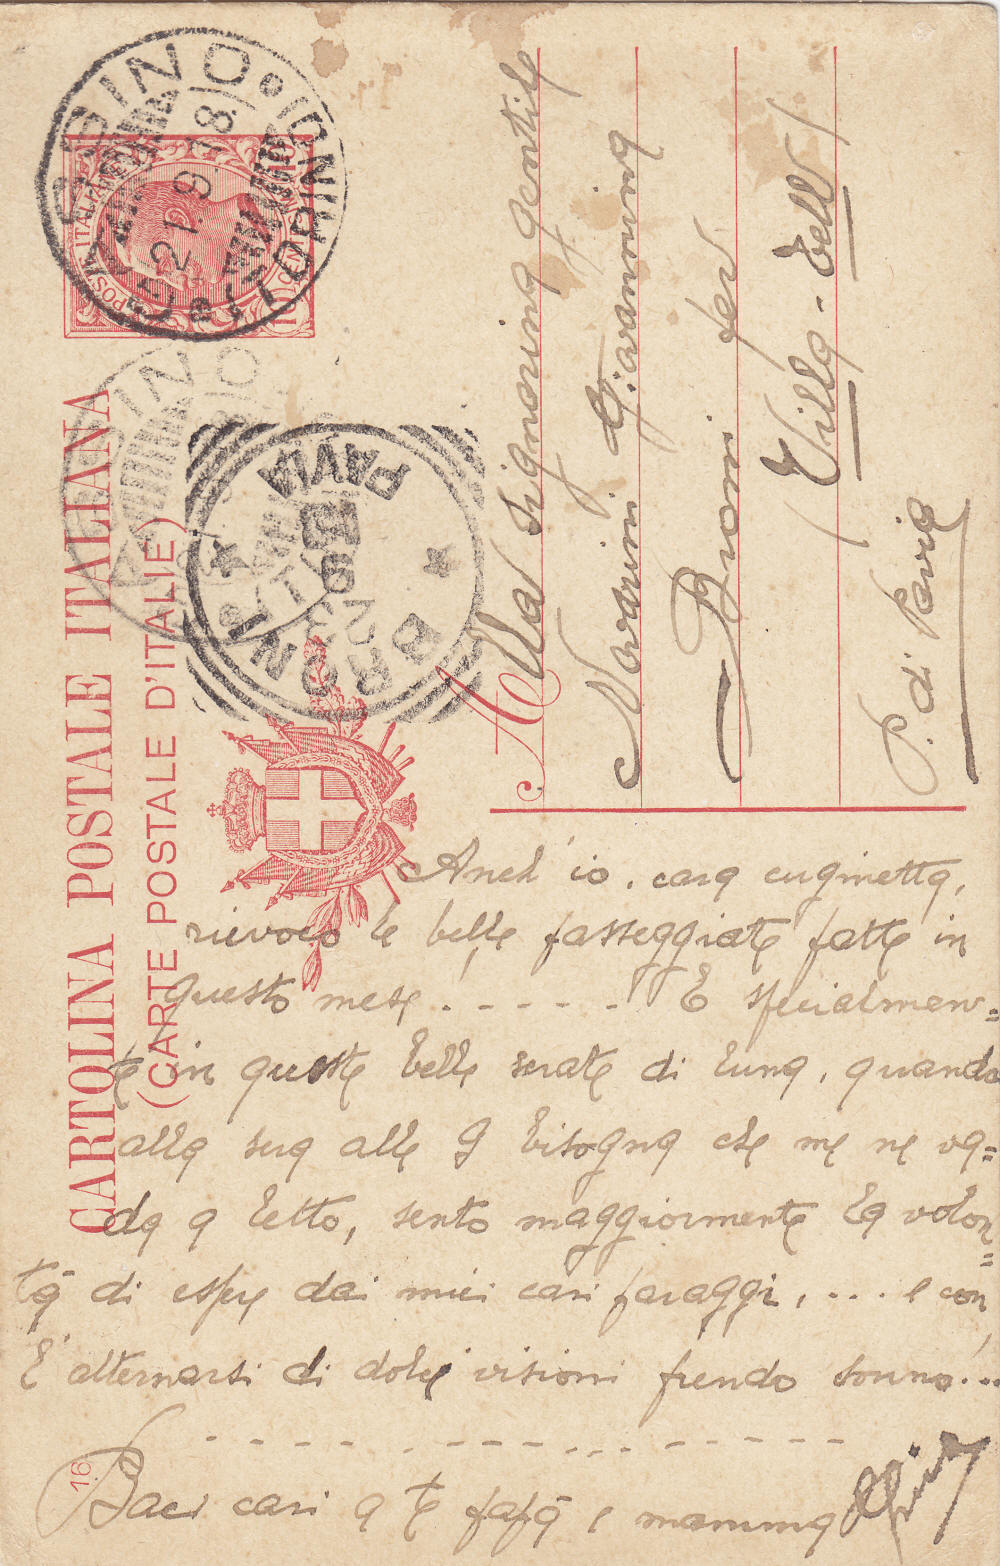 CARTOLINA POSTALE ITALIANA
(CARTE POSTALE D'ITALIE)
(TORINO)
21. 9. 18.
BRONI
PAVIA
A
lla signorina gentile
Giovannina
Broni per
Villa-
P. di Pavia
Anch'io, cara cuginetta,
rievoco le belle passeggiate fatte in
questo mese ...... E specialmen=
te in queste belle serate di luna, quando
alla sera alle 9 bisogna che me ne va=
da a letto, sento maggiormente la volon=
tà di esser dai miei cari paraggi, .... e con
l'alternarsi di dolci visioni prendo sonno...
Baci cari a te papà e mamma
16